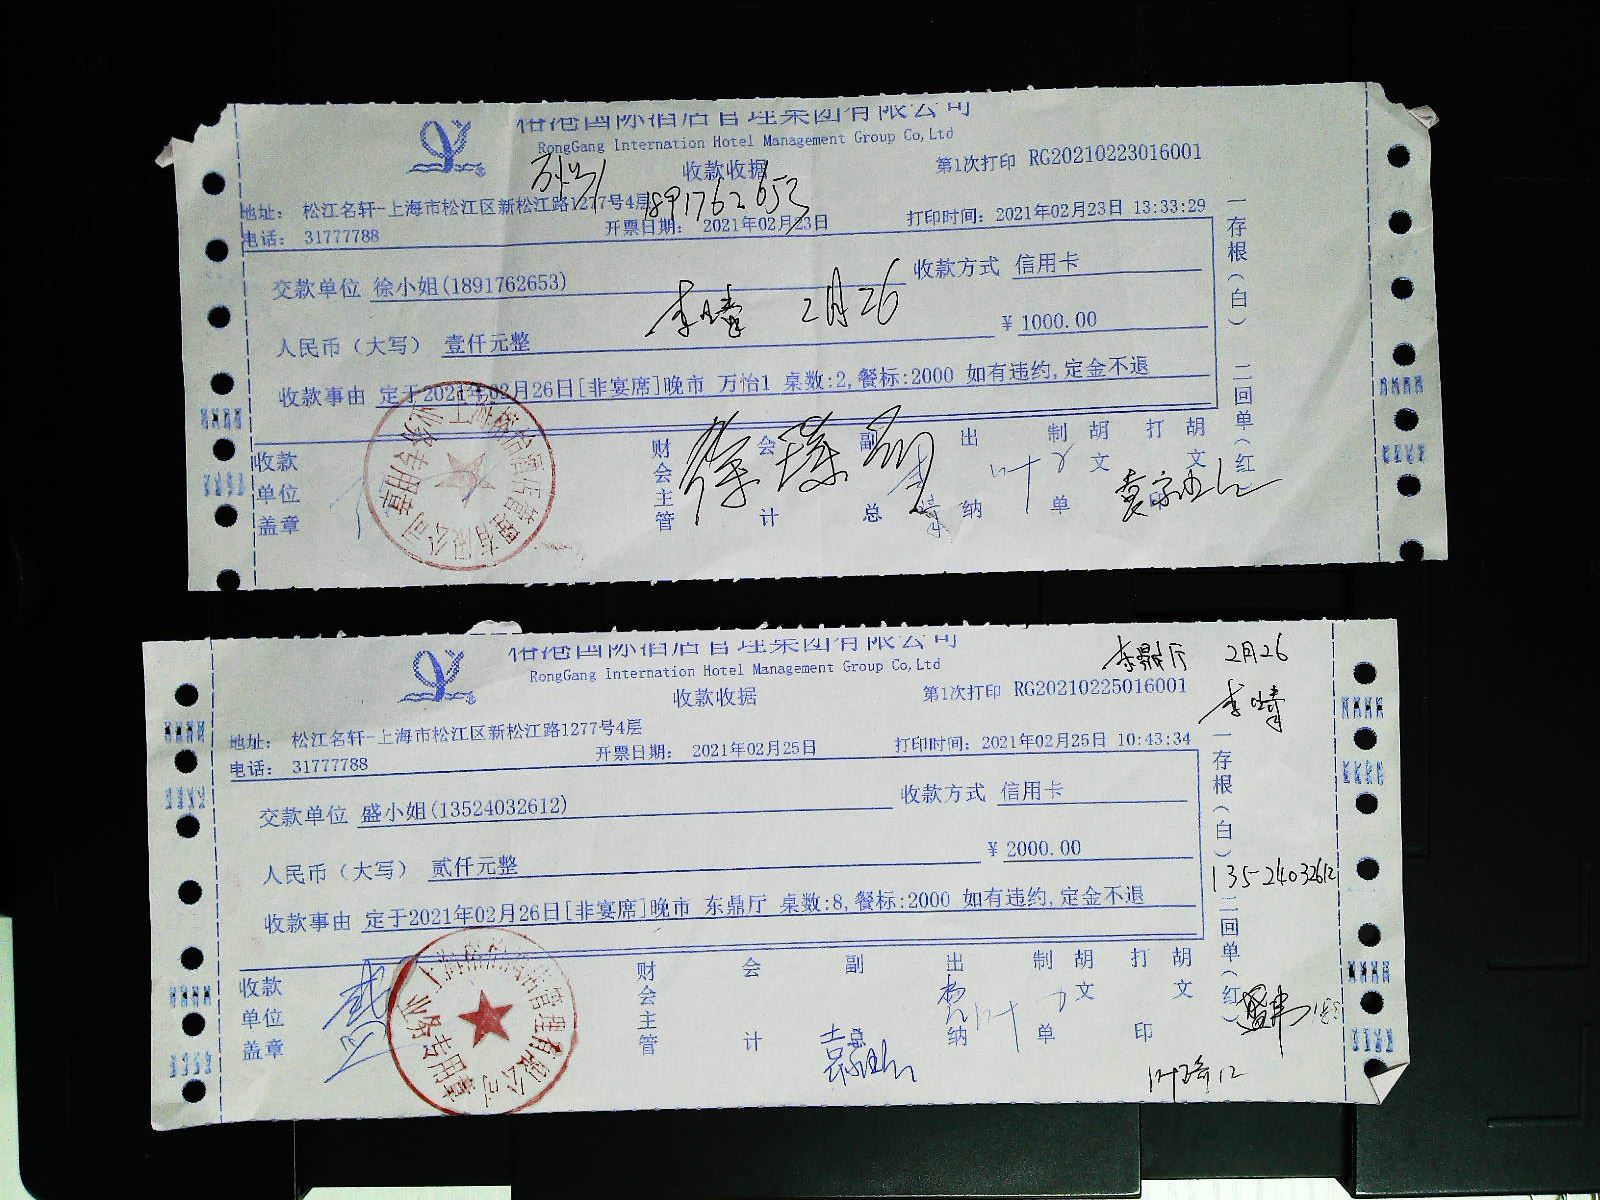 国际酒店管理集团有限公司
RongGang Internation Hotel Management Group Co,Ltd
收款收据
第1次打印 RG20210223016001
1891762653
地址： 松江名轩-上海市松江区新松江路1277号4层
电话： 31777788
开票日期： 2021年02月23日
打印时间：2021年02月23日 13:33:29
交款单位 徐小姐(1891762653)
收款方式 信用卡
李晴 2月26
人民币（大写） 壹仟元整
¥ 1000.00
收款事由 定于2021年02月26日[非宴席]晚市 万怡1 桌数:2,餐标:2000 如有违约,定金不退
收款单位盖章
业务专用章
财会主管
会计
副总
出纳
制单
胡文
打印
胡文
一存根（白） 二回单（红）
国际酒店管理集团有限公司
RongGang Internation Hotel Management Group Co,Ltd
收款收据
第1次打印 RG20210225016001
东鼎厅 2月26
李晴
地址： 松江名轩-上海市松江区新松江路1277号4层
电话： 31777788
开票日期： 2021年02月25日
打印时间：2021年02月25日 10:43:34
交款单位 盛小姐(13524032612)
收款方式 信用卡
人民币（大写） 贰仟元整
¥ 2000.00
13524032612
收款事由 定于2021年02月26日[非宴席]晚市 东鼎厅 桌数:8,餐标:2000 如有违约,定金不退
收款单位盖章
业务专用章
财会主管
会计
副总
出纳
制单
胡文
打印
胡文
一存根（白） 二回单（红）